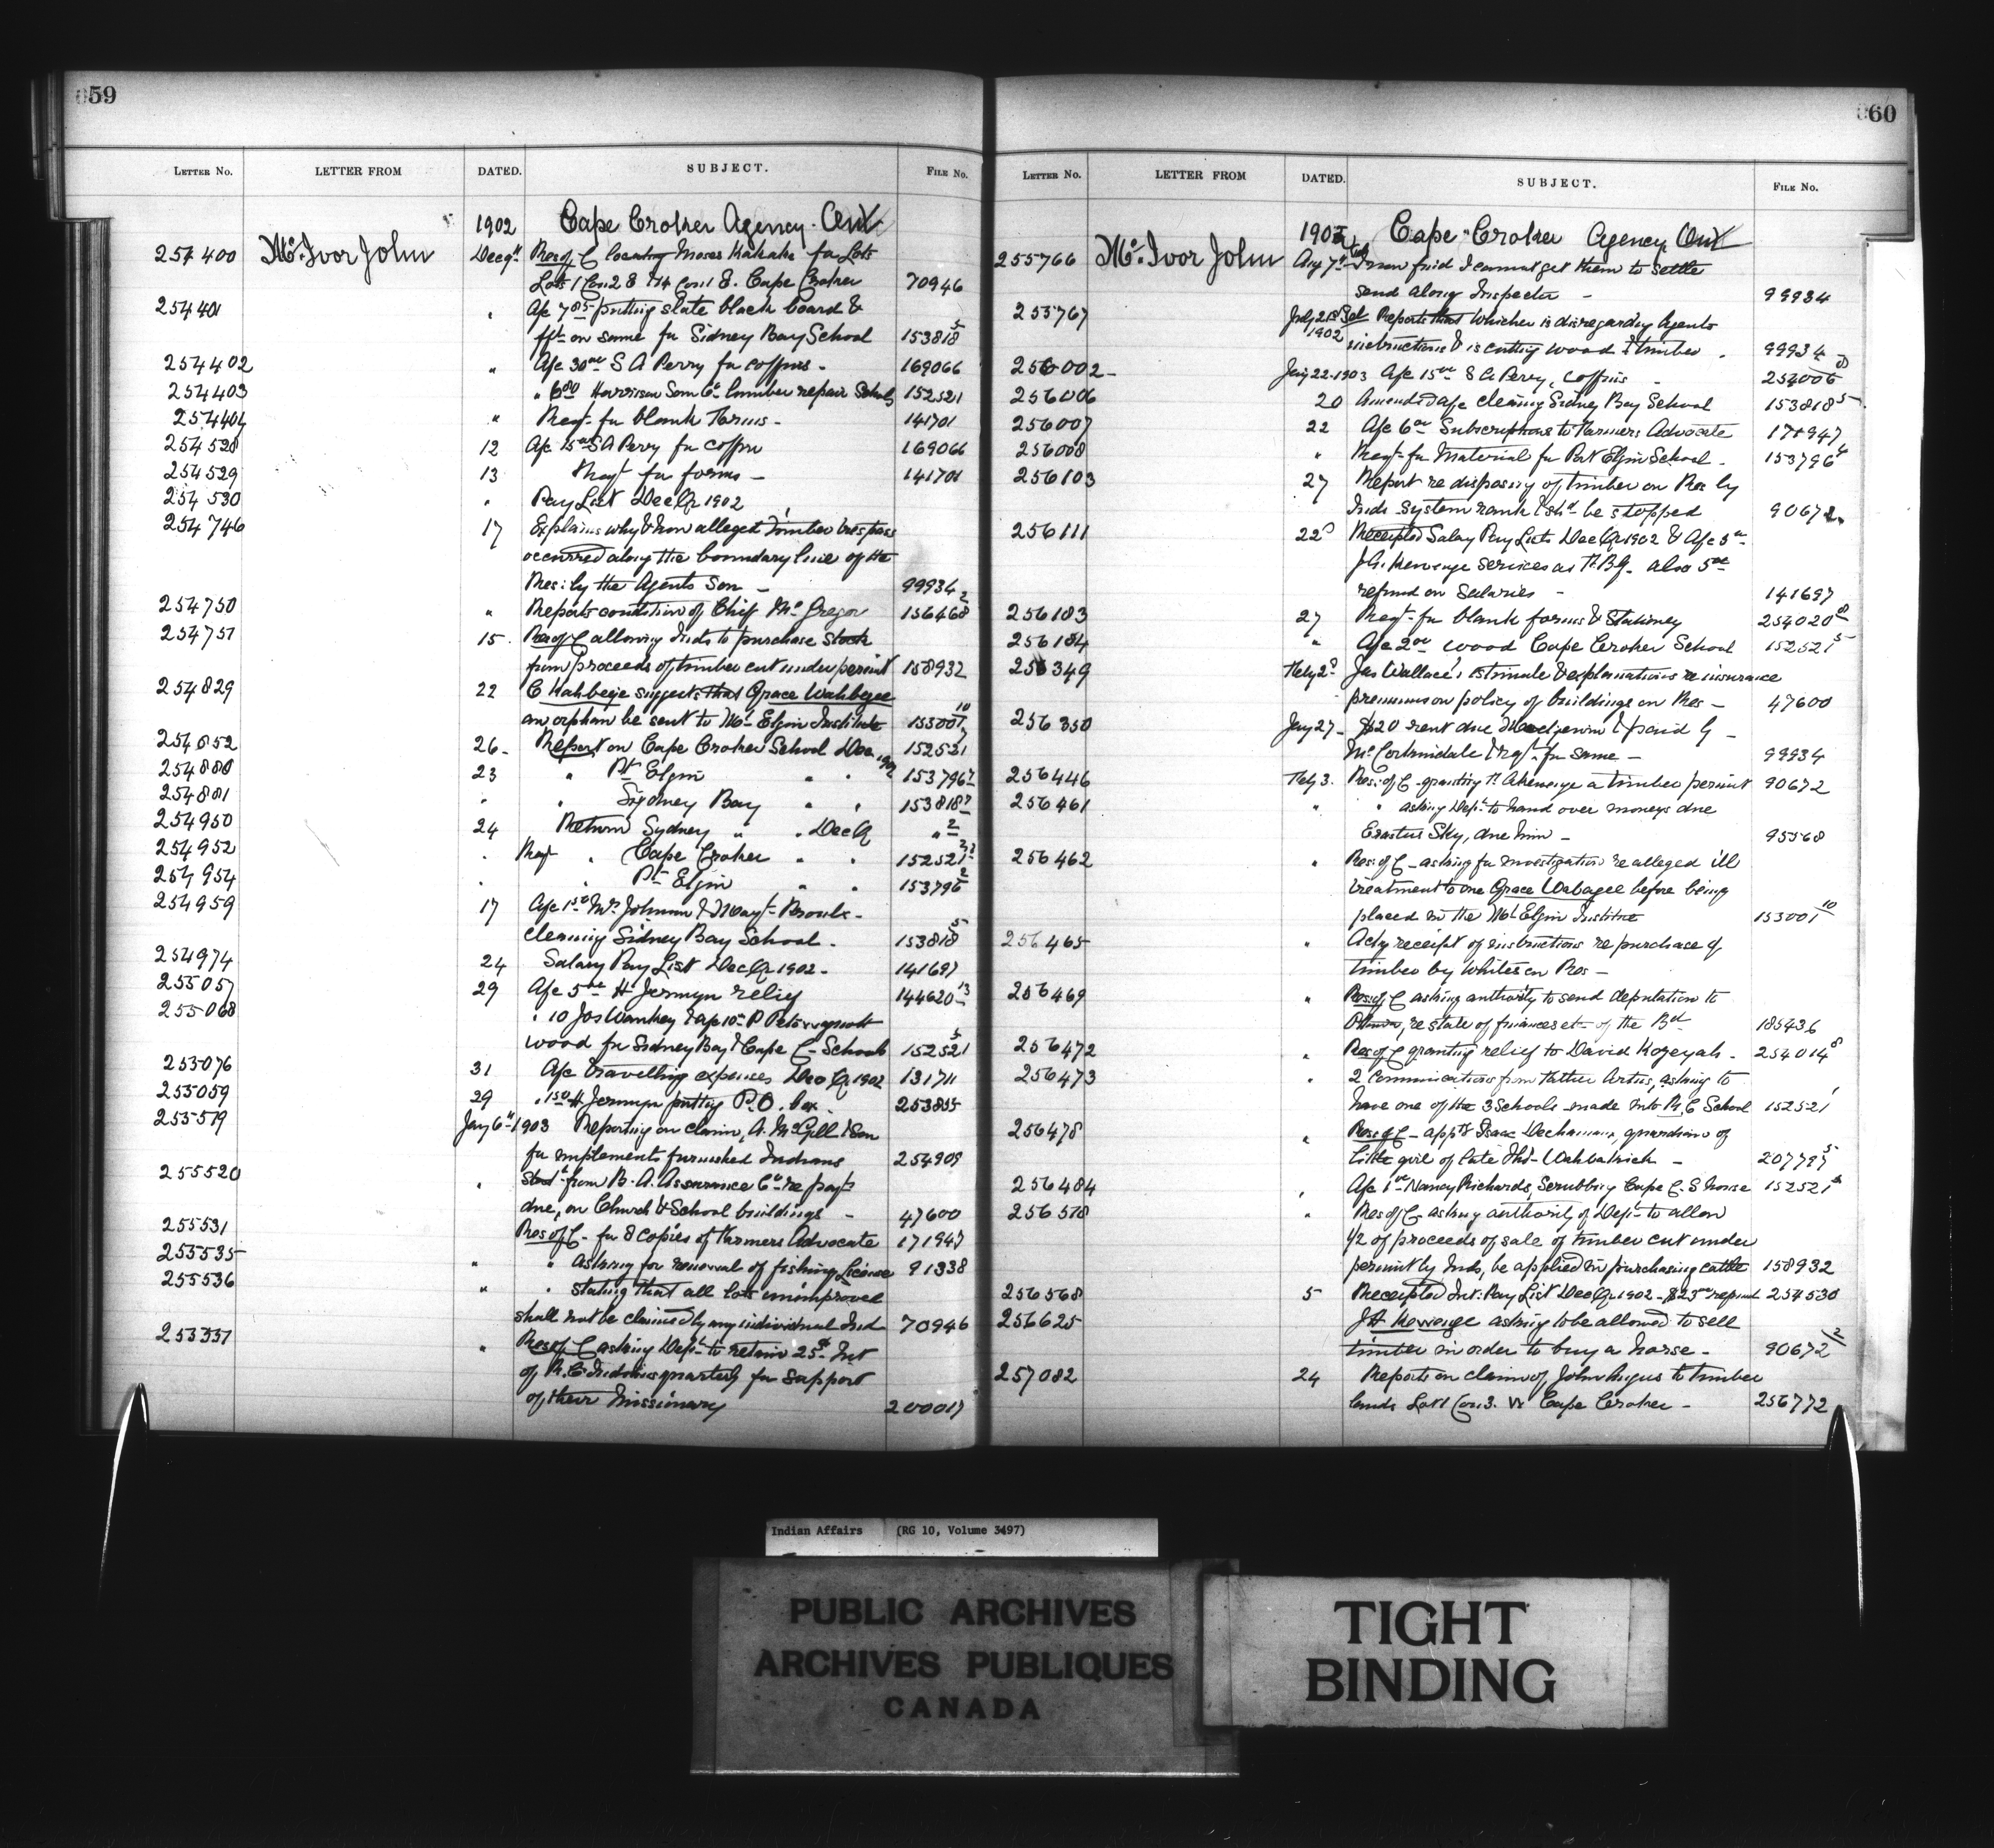 59
LETTER No. LETTER FROM DATED. SUBJECT. FILE No.
1902 Cape Croker Agency Ont
254400 Mc.Ivor John Dec 9th Res of C locating Moses Kahake for Lots
Lots 1 Con 2 & 14 Con 1 E. Cape Croker 70946
254401 " A/c 7 85 putting slate black board &
frt on same for Sidney Bay School 153818 5
254402 " A/c 30 00 S A Perry for coffins - 169066
254403 " 6 80 Harrison Sons Co lumber repair Schools 152521
254404 " Reqt- for blank Forms - 141701
254528 12 A/c S A Perry for coffin 169066
254529 13 Reqt for forms - 141701
254530 " Pay List Dec Qr 1902
254746 17 Explains why & how alleged timber trespass
occurred along the boundary line of the
Res: by the Agents Son - 99934
254750 " Reports condition of Chief McGregor 156468 2
254751 15 Res of C allowing Inds to purchase Stock
from proceeds of timber cut under permit 158932
254829 22 C Kahbeeje suggests that Grace Wahbegee
an orphan be sent to Mt Elgin Institute 153001 10
254852 26- Report on Cape Croker School Dec 1902 152521 7
254880 23 " Pt Elgin " " 153796 7
254881 " " Sydney Bay " " 153818 7
254950 24 Return Sydney " " Dec Q " 2
254952 " Reqt " Cape Croker " " 152521
254954 " " Pt Elgin " " 153796 2
254959 17 A/c 1 50 Mrs Johnson & Mayt-
cleaning Sidney Bay School - 153818 5
254974 24 Salary Pay List Dec Qr 1902 - 141697
255057 29 A/c 5 00 H Jermyn relief 144620 13
255068 " 10 Jos Wankey & A/c 10 P
wood for Sidney Bay & Cape C- Schools 152521 5
255076 31 A/c travelling expenses Dec Qr 1902 131711
255059 29 " 1 50 H Jermyn putting P.O. box - 253855
255519 Jany 6th 1903 Reporting on claim, A. McGill & Son
for implements furnished Indians 254909
255520 " from B. A. Assurance Co re payt
due, on Church & School buildings - 47600
255531 Res of C- for 8 copies of Farmers Advocate 171947
255535 " " Asking for renewal of fishing License 91338
255536 " " stating that all lots unimproved
shall not be claimed by any individual Ind 70946
" Res of C asking Dept to retain 25 $ Int
of R.C. Indians quarterly for support
of their Missionary 200017
60
LETTER No. LETTER FROM DATED. SUBJECT. FILE No.
Cape Croker Agency Ont
255766 Mc.Ivor John Aug 7th I now find I cannot get them to settle
send along Inspector - 99934
255767 July 21st Sol Reports that Whicher is disregarding Agents
1902 instructions & is cutting wood & timber . 99934
256002- Jany 22-1903 A/c 15 00 S A Perry, coffins - 254006 8
256006 20 Amended a/c cleaning Sidney Bay School 153818 5
256007 22 A/c 6 00 Subscriptions to Farmers Advocate 171947
256008 " Reqt- for Material for Port Elgin School - 153796 4
256103 27 Report re disposing of timber on Res by
Inds System rank & shd be stopped 90672
256111 22 Receipted Salary Pay Lists Dec Qr 1902 & A/c 3 00
J.A. Kewenge services as F.Bg. also 5 00
refund on Salaries - 141697
256183 27 Reqt- for blank forms & Stationery 254020 8
256184 " A/c 2 00 wood Cape Croker School 152521 5
256349 Feby 2 Jas Wallace's estimate & explanations re insurance
premium on policy of buildings on Res - 47600
256350 Jany 27- $20 rent due & paid by -
& Reqt. for same - 99934
256446 Feby 3. Res: of C- granting F. Akewenge a timber permit 90672
256461 " " asking Dept to hand over moneys due
Erastus Sky, due him - 95568
256462 " Res: of C- asking for investigation re alleged ill
treatment to one Grace Wabagee before being
placed in the Mt Elgin Institute 153001 10
256465 " Ackg receipt of instructions re purchase of
timber by Whites on Res -
256469 " Res of C asking authority to send deputation to
Ottawa, re state of finances etc of the Bd 185436
256472 " Res of C granting relief to David Kozeyah - 254014 8
256473 " 2 Communications from Father Artus, asking to
have one of the 3 Schools made into R.C School 152521 1
256478 " Res of C- apptg Isaac guardian of
little girl of late Thos - 207795
256484 " A/c 1 00 Nancy Richards, Scrubbing Cape C- S house 152521
256518 " Res of C- asking authority of Dept- to allow
1/2 of proceeds of sale of timber cut under
permit by Inds, be applied in purchasing cattle 158932
256568 5 Receipted Int: Pay List Dec Qr 1902 - $23 refund 254530
256625 J H Kewenge asking to be allowed to sell
timber in order to buy a horse - 90672 2
257082 24 Reports on claim of John Angus to timber
lands Lot 1 Con 3. W Cape Croker - 256772
Indian Affairs (RG 10, Volume 3497)
PUBLIC ARCHIVES
ARCHIVES PUBLIQUES
CANADA
TIGHT
BINDING